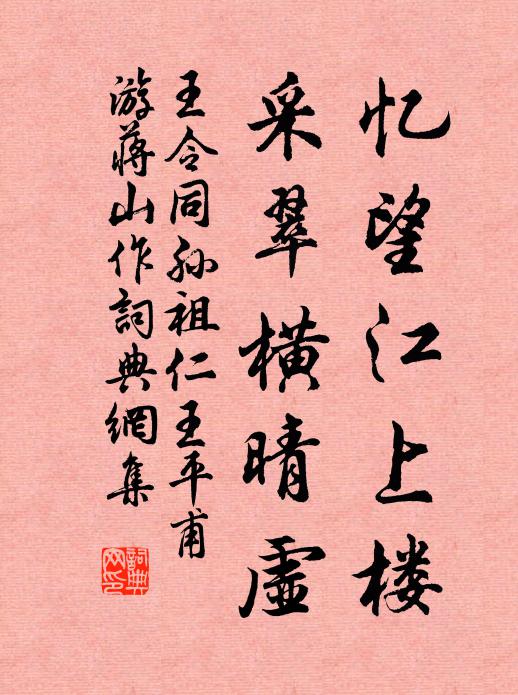 忆望江上楼
采翠横晴虚
王令同孙祖仁王平甫
游蒋山作詞典網集
詞典网印